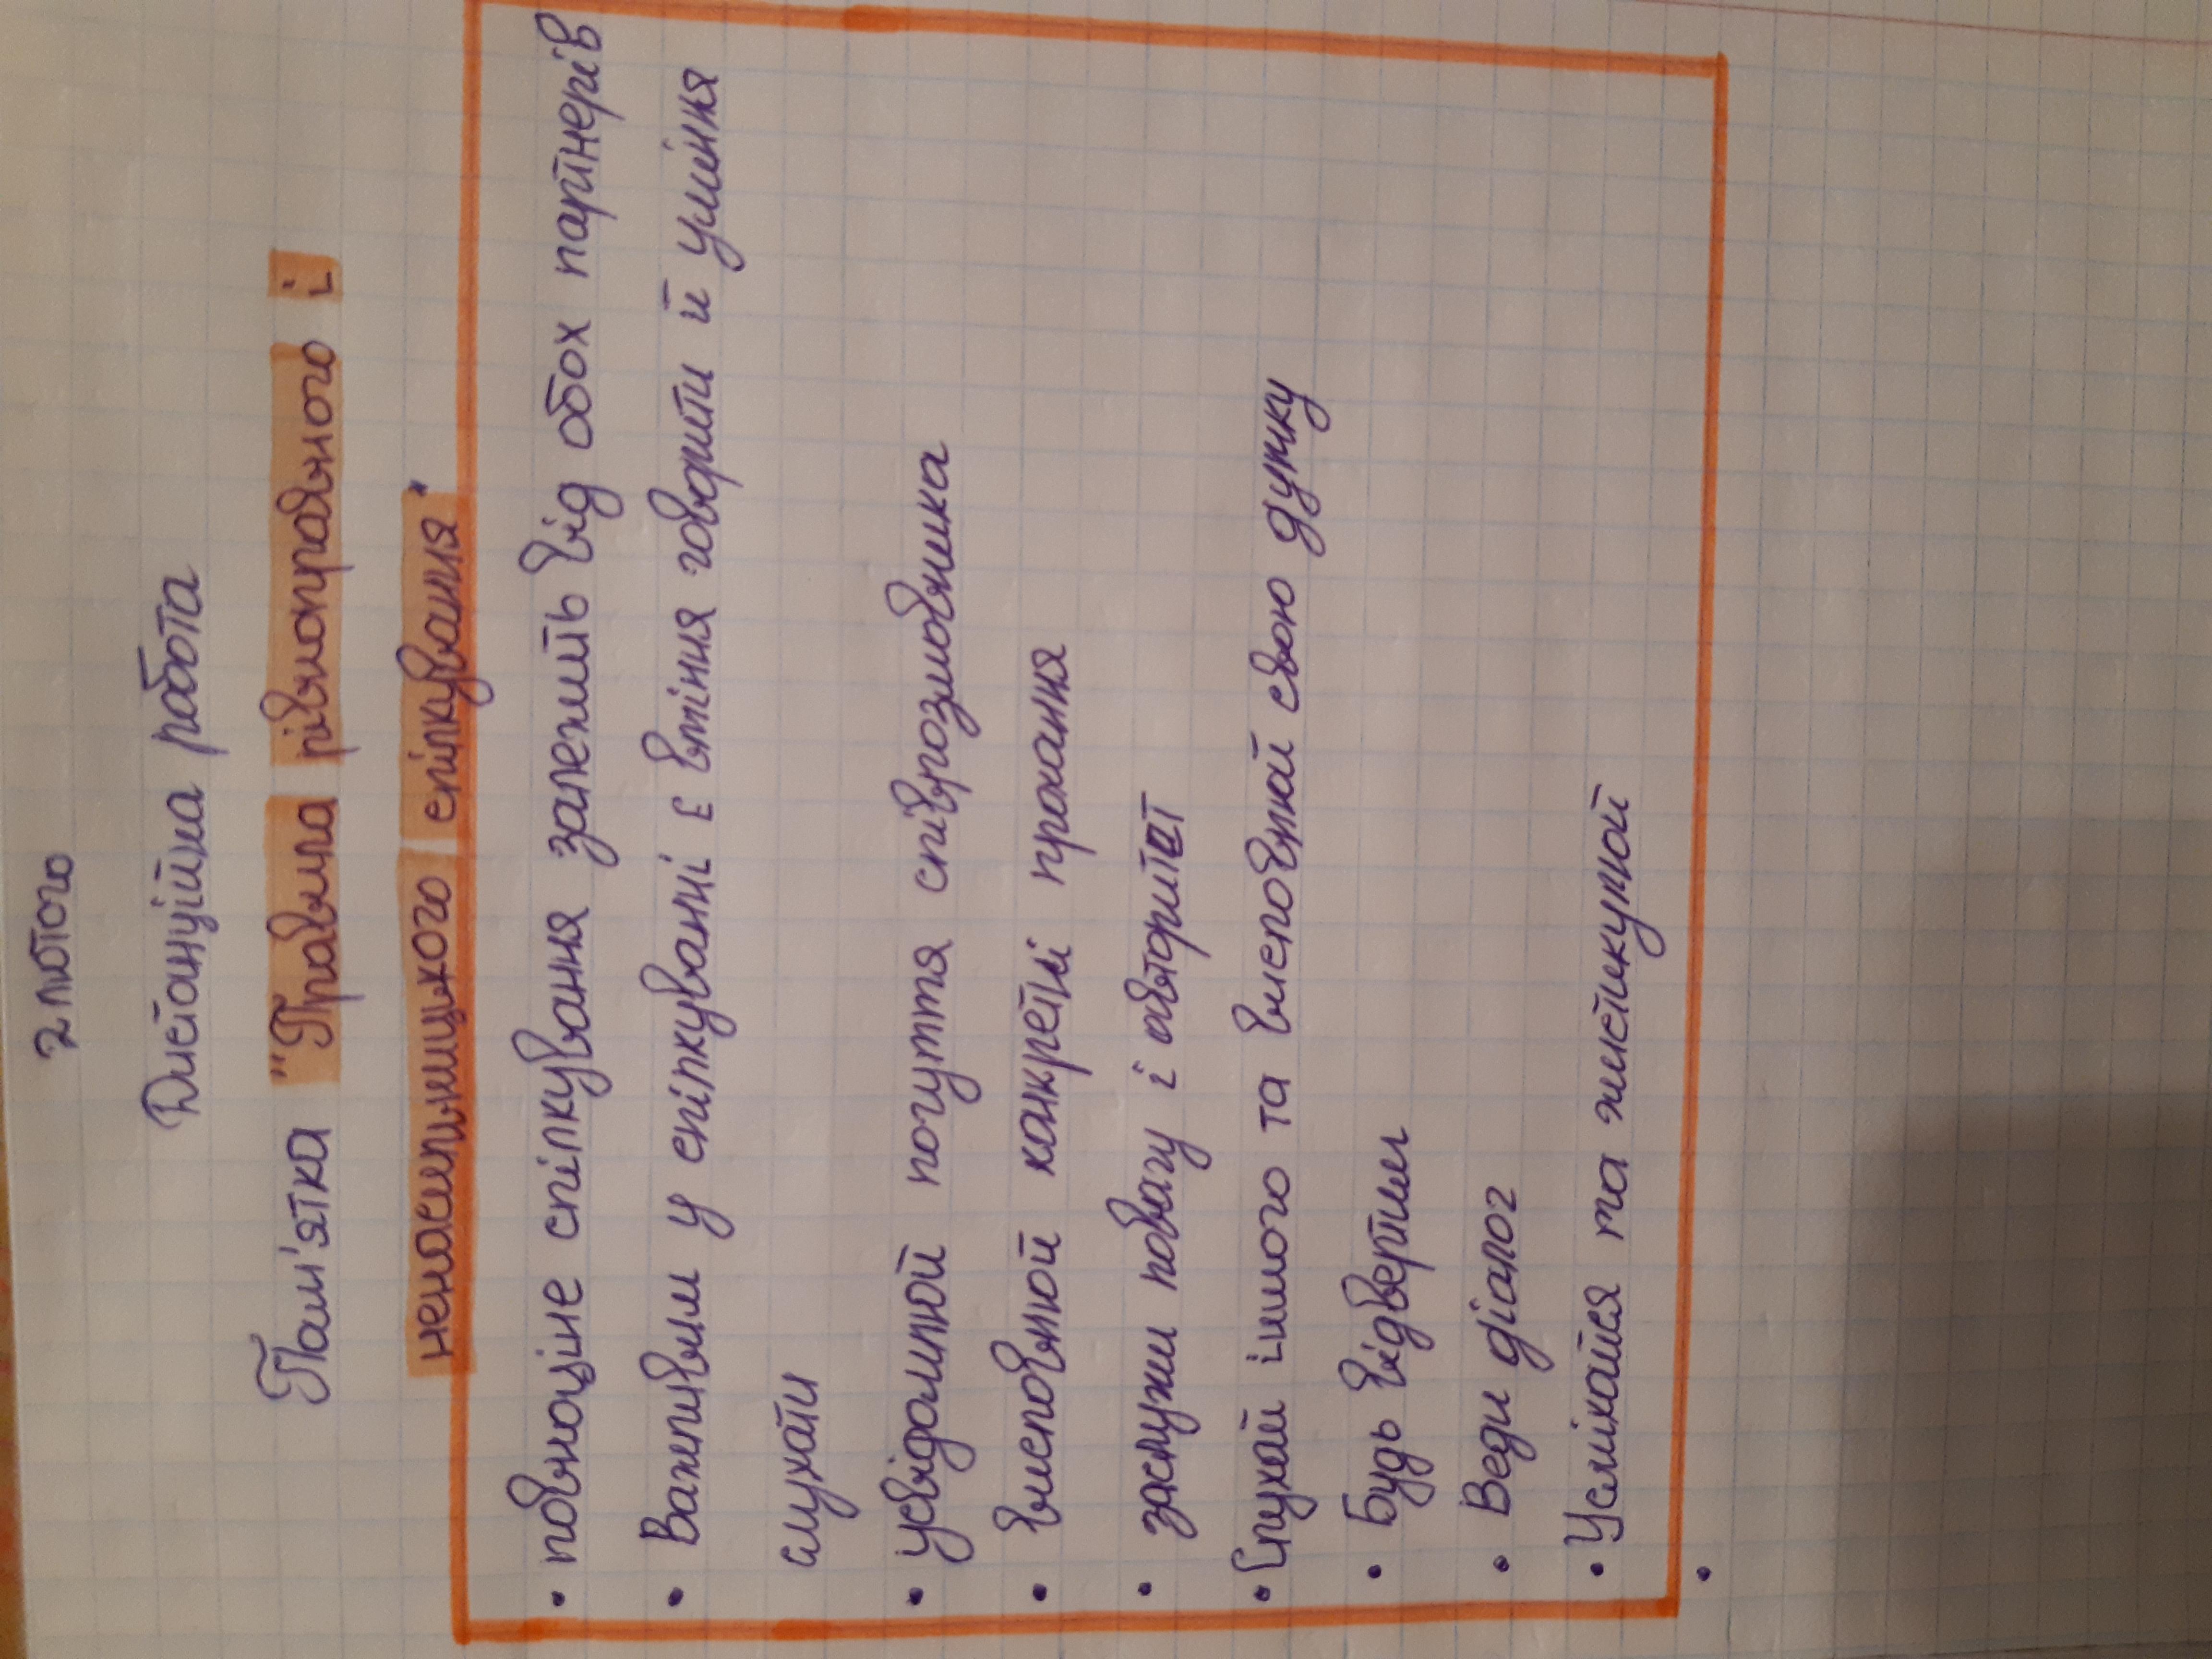 2 лютого
Дистанційна робота
Пам'ятка "Правила рівноправного і
ненасильницького спілкування"
• повноцінне спілкування залежить від обох партнерів
• Важливим у спілкуванні є вміння говорити й уміння
слухати
• усвідомлюй почуття співрозмовника
• висловлюй конкретні прохання
• заслужи повагу і авторитет
• Слухай іншого та висловлюй свою думку
• Будь відвертим
• Веди діалог
• Усміхайся та жестикулюй
•